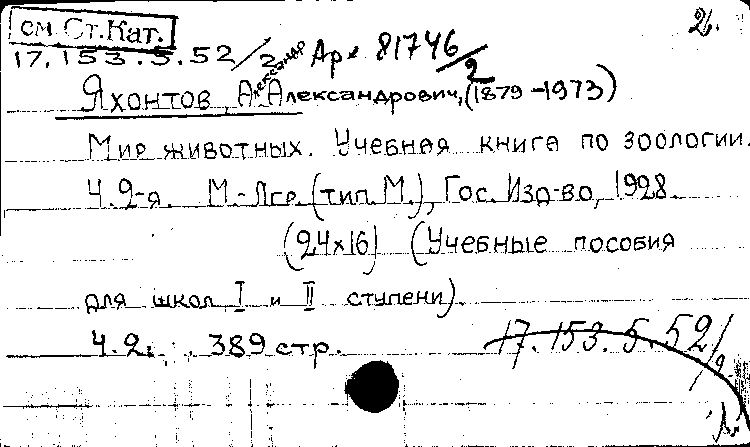 см Ст.Кат.
26.
17.153.5.52/2 Арх. 81746/2
Яхонтов, Александр Александрович, (1879-1973)
Мир животных. Учебная книга по зоологии.
Ч.2-я. М.-Лгр. (тип. М.), Гос. Изд-во, 1928.
(24х16) (Учебные пособия
для школ I и II ступени).
Ч.2: 389 стр.
17.153.5.52/2